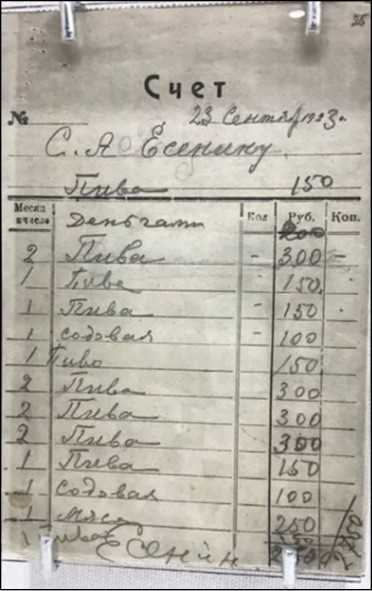 Счет
№ 23 Сентяр 1923 г.
С. А Есенину.
Пива 150
Месяц и число Кол Руб. Коп.
Деньгами 200
2 Пива - 300 -
1 Пива - 150.
1 Пива - 150
1 Содовая 100
1 Пиво 150
2 Пива 300
2 Пива 300
2 Пива 300
1 Пива 150
1 Содовая 100
1 Мясо 250
1 Пива
Есенин